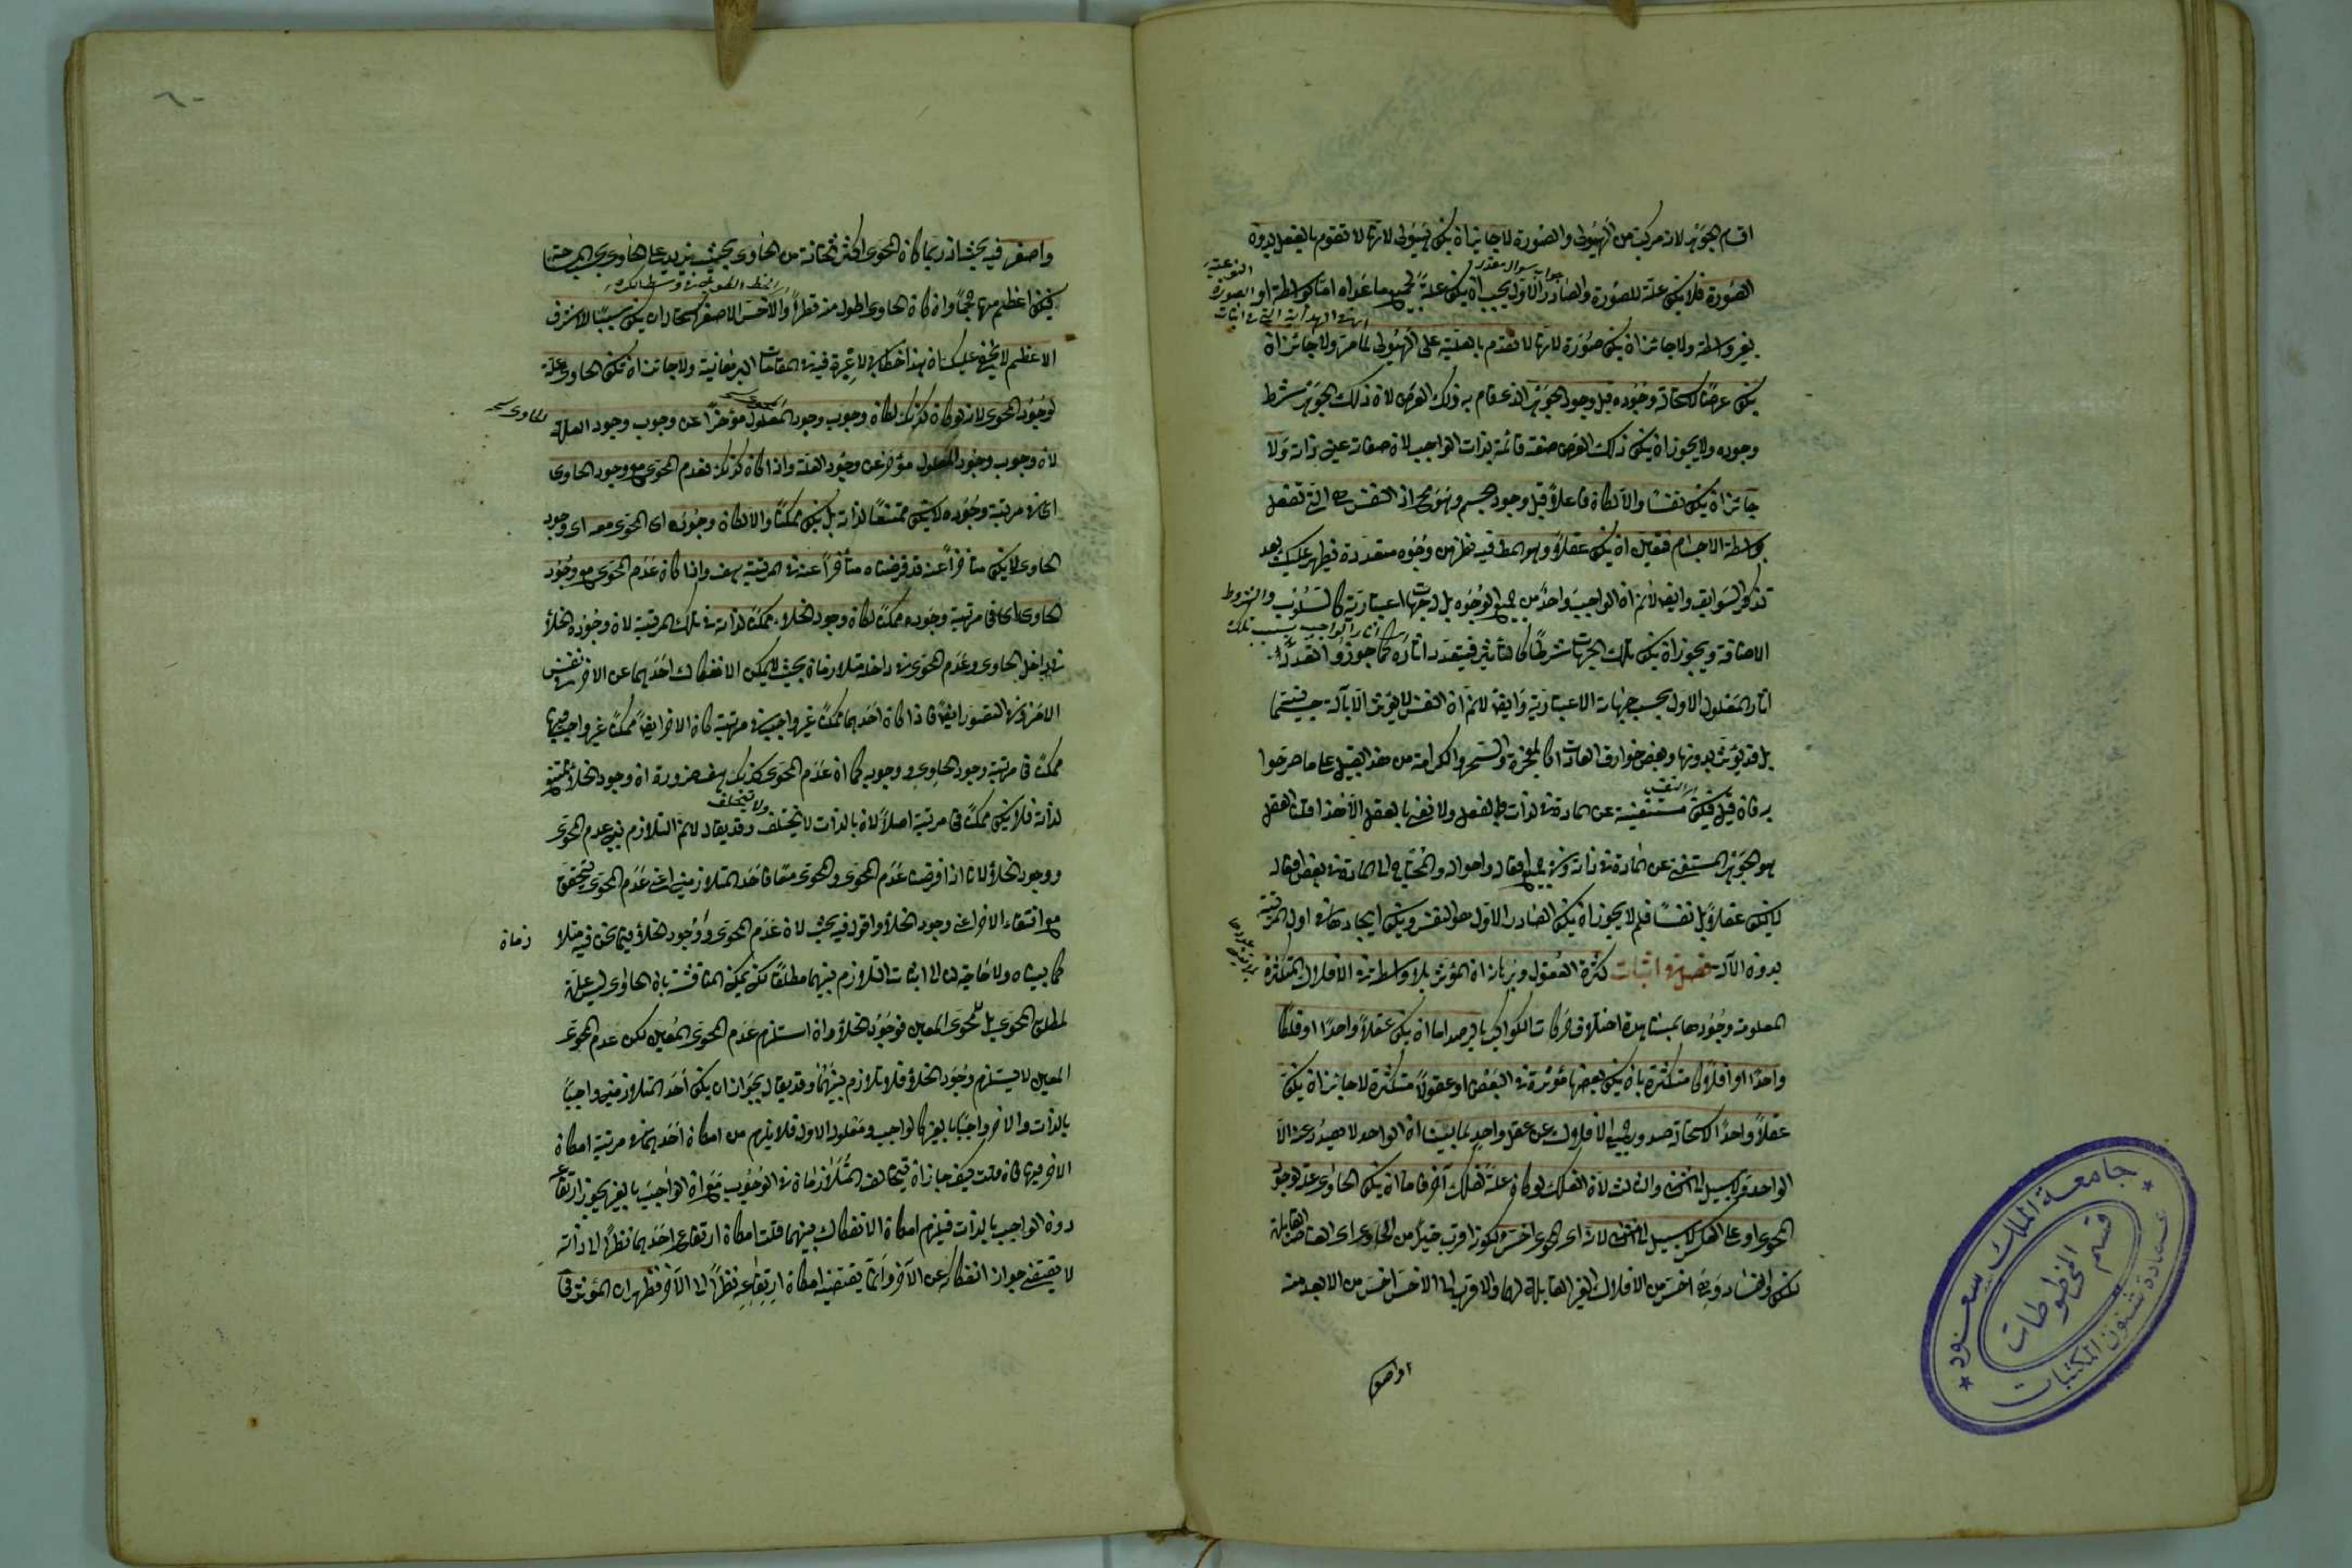 اقسام الجوهر لانه مركب من الهيولى والصورة لا جائز ان يكون هيولى لانها لا تقوم بالفعل بدون
الصورة فلا يكون علة للصورة والصادر الاول يجب ان يكون علة لجميع ما عداه اما بواسطة او
جواب سوال مقدر
النوعية
الصورة
بغير واسطة ولا جائز ان يكون صورة لانها لا تتقدم بالعلية على الهيولى لما مر ولا جائز ان
يكون عرضا لاستحالة وجوده قبل وجود الجوهر الذى قام به ذلك العرض لان ذلك الجوهر شرط
وجوده ولا يجوز ان يكون ذلك العرض صفة قائمة بذات الواجب لان صفاته عين ذاته ولا
جائز ان يكون نفسا والا لكان فاعلا قبل وجود الجسم وهو مح اذ النفس هى التى تفعل
بواسطة الاجسام فتعين ان يكون عقلا وهو المط فيه نظر من وجوه متعددة فيظهر عليك بعد
تذكر السوابق وايضا لانم ان الواجب واحد من جميع الوجوه بل له جهات اعتبارية كالسلوب والشروط
الاضافة ويجوز ان يكون تلك الجهات شرطا لتأثير فيتعدد اثاره كما جوزوا تعدد
اثار الواجب بسبب تلك
اثار المعلول الاول بحسب جهاته الاعتبارية وايضا لانم ان النفس لا يؤثر الا بآلة جسمية
بل قد يؤثر بدونها وبعض خوارق العادات كالمعجزة والسحر والكرامة من هذا القبيل على ما صرحوا
به فان قيل فيكون مستغنية عن المادة فى الذات والفعل ولا نعنى بالعقل الا هذا قلنا العقل
اى النفس
هو الجوهر المستغنى عن المادة فى ذاته وفى جميع افعاله واحواله والمحتاج الى المادة فى بعض افعاله
لا يكون عقلا بل نفسا فلم لا يجوز ان يكون الصادر الاول هو النفس ويكون ايجادها فى اول المرتبة
بدون الآلة فصل فى اثبات كثرة العقول وبرهانه ان المؤثر بلا واسطة فى الافلاك المتكثرة
المعلومة وجودها بمشاهدة اختلاف حركات الكواكب بالرصد اما ان يكون عقلا واحدا او فلكا
واحدا او افلاكا متكثرة بان يكون بعضها مؤثرة فى البعض او عقولا متكثرة لا جائز ان يكون
عقلا واحدا لاستحالة صدور جميع الافلاك عن عقل واحد لما بينا ان الواحد لا يصدر عنه الا
الواحد ولا سبيل الى الثانى والثالث لان الفلك لو كان علة لفلك آخر فاما ان يكون الحاوى علة لوجود
المحوى او على العكس لا سبيل الى الثانى لانه اى المحوى اخس لكونه اقرب حيزا من الحاوى اى العناصر القابلة
للكون والفساد وهى اخس من الافلاك الغير القابلة لهما والاقرب الى الاخس اخس من الابعد منه
واصغر
واصغر فيه بحث اذ ربما كان المحوى اكثر ثخانة من الحاوى بحيث يزيد على الحاوى بحسب المساحة
فيكون اعظم منه حجما وان كان الحاوى اطول منه قطرا والاخس الاصغر استحال ان يكون سببا للاشرف
الاعظم لا يخفى عليك ان هذا خطابى لا عبرة فيه فى المقامات البرهانية ولا جائز ان يكون الحاوى علة
لوجود المحوى لانه لو كان كذلك لكان وجوب وجود المعلول مؤخرا عن وجوب وجود العلة
للحاوى
لان وجوب وجود المعلول مؤخر عن وجود العلة واذا كان كذلك فعدم المحوى مع وجود الحاوى
اى فى مرتبة وجوده لا يكون ممتنعا لذاته بل يكون ممكنا والا لكان وجوده اى المحوى معه اى وجود
الحاوى لا يكون متأخرا عنه قد فرضناه متأخرا عنه فى المرتبة هف واذا كان عدم المحوى مع وجود
الحاوى اى فى مرتبة وجوده ممكنا لكان وجود الخلاء ممكنا لذاته فى تلك المرتبة لان وجود الخلأ
فى داخل الحاوى وعدم المحوى فى داخله متلازمان بحيث لا يمكن الانفكاك احدهما عن الاخر فى نفس
الامر وفى التصور ايضا فاذا كان احدهما ممكنا غير واجب فى مرتبة كان الاخر ايضا ممكنا غير واجب فيها
ممكنا فى مرتبة وجود الحاوى ووجوبه كما ان عدم المحوى كذلك هف ضرورة ان وجود الخلأ ممتنع
لذاته فلا يكون ممكنا فى مرتبة اصلا لان ما بالذات لا يختلف وقد يقال لانم التلازم بين عدم المحوى
ولا يتخلف
ووجود الخلأ لانا اذا فرضنا عدم المحوى والحوى معا فاحد المتلازمين اعنى عدم المحوى يتحقق
مع انتفاء الاخر اعنى وجود الخلأ واقول فيه بحث لان عدم المحوى ووجود الخلأ فيما نحن فيه متلا
زمان
كما بيناه ولا حاجة لنا الى اثبات التلازم بينهما مطلقا لكن يمكن المناقشة بان الحاوى ليس علة
لمطلق المحوى بل لمحوى المعين فوجود الخلأ وان استلزم عدم المحوى المعين لكن عدم المحوى
المعين لا يستلزم وجود الخلأ فلا تلازم بينهما وقد يقال يجوز ان يكون احد المتلازمين واجبا
بالذات والاخر واجبا بالغير كالواجب ومعلوله الاول فلا يلزم من امكان احدهما فى مرتبة امكان
الاخر فيها فان قلت كيف جاز ان يتخالف المتلازمان فى الوجوب مع ان الواجب بالغير يجوز ارتفاعه
دون الواجب بالذات فيلزم امكان الانفكاك بينهما قلت امكان ارتفاع احدهما نظرا الى ذاته
لا يقتضى جواز انفكاكه عن الآخر وانما يقتضيه امكان ارتفاعه نظرا الى الآخر فظهر ان المؤثر فى
جامعة الملك سعود
عمادة شئون المكتبات
قسم المخطوطات